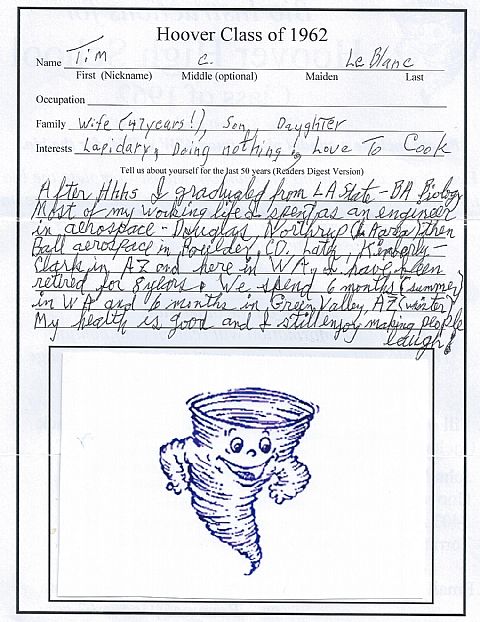 Hoover Class of 1962
Name Tim C. Le Blanc
First (Nickname) Middle (optional) Maiden Last
Occupation
Family Wife (47 years!), Son, Daughter
Interests Lapidary, Doing nothing! Love To Cook
Tell us about yourself for the last 50 years (Readers Digest Version)
After HHHs I graduated from LA State - BA Biology
Most of my working life I spent as an engineer
in aerospace - Douglas, Northrup then
Ball aerospace in Boulder, CO. Kimberly-
Clark in AZ and here in WA. I have been
retired for 8 years. We spend 6 months (summer)
in WA and 6 months in Green Valley, AZ (winter)
My health is good and I still enjoy making people
laugh!